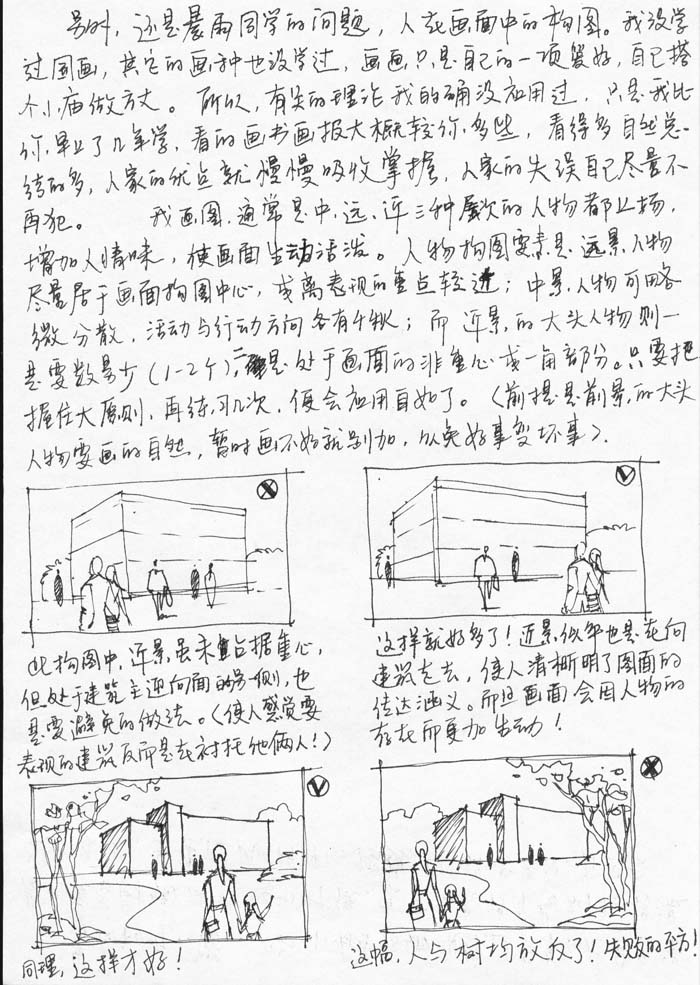 另外，还是暴雨同学的问题，人在画面中的构图。我没学
过国画，其它的画种也没学过，画画只是自己的一项爱好，自己搭
个小庙做方丈。所以，有关的理论我的确没应用过，只是我比
你毕业了几年学，看的画书画报大概较你多些，看得多自然总
结的多，人家的优点就慢慢吸收掌握，人家的失误自己尽量不
再犯。 我画图，通常是中、远、近三种层次的人物都上场，
增加人情味，使画面生动活泼。人物构图要素是远景人物
尽量居于画面构图中心，或离表现的重点较近；中景人物可略
微分散，活动与行动方向各有千秋；而近景的大头人物则一
是要数量少（1-2个），二是处于画面的非重心或一角部分。只要把
握住大原则，再练习几次，便会应用自如了。（前提是前景的大头
人物要画的自然，暂时画不好就别加，以免好事变坏事）.
此构图中，近景虽未占据重心，
但处于建筑主迎向面的另侧，也
是要避免的做法。（使人感觉要
表现的建筑反而是在衬托他俩人！）
这样就好多了！近景似乎也是在向
建筑走去，使人清晰明了图面的
传达涵义。而且画面会因人物的
存在而更加生动！
同理，这样才好！
这幅，人与树均放反了！失败的平方！